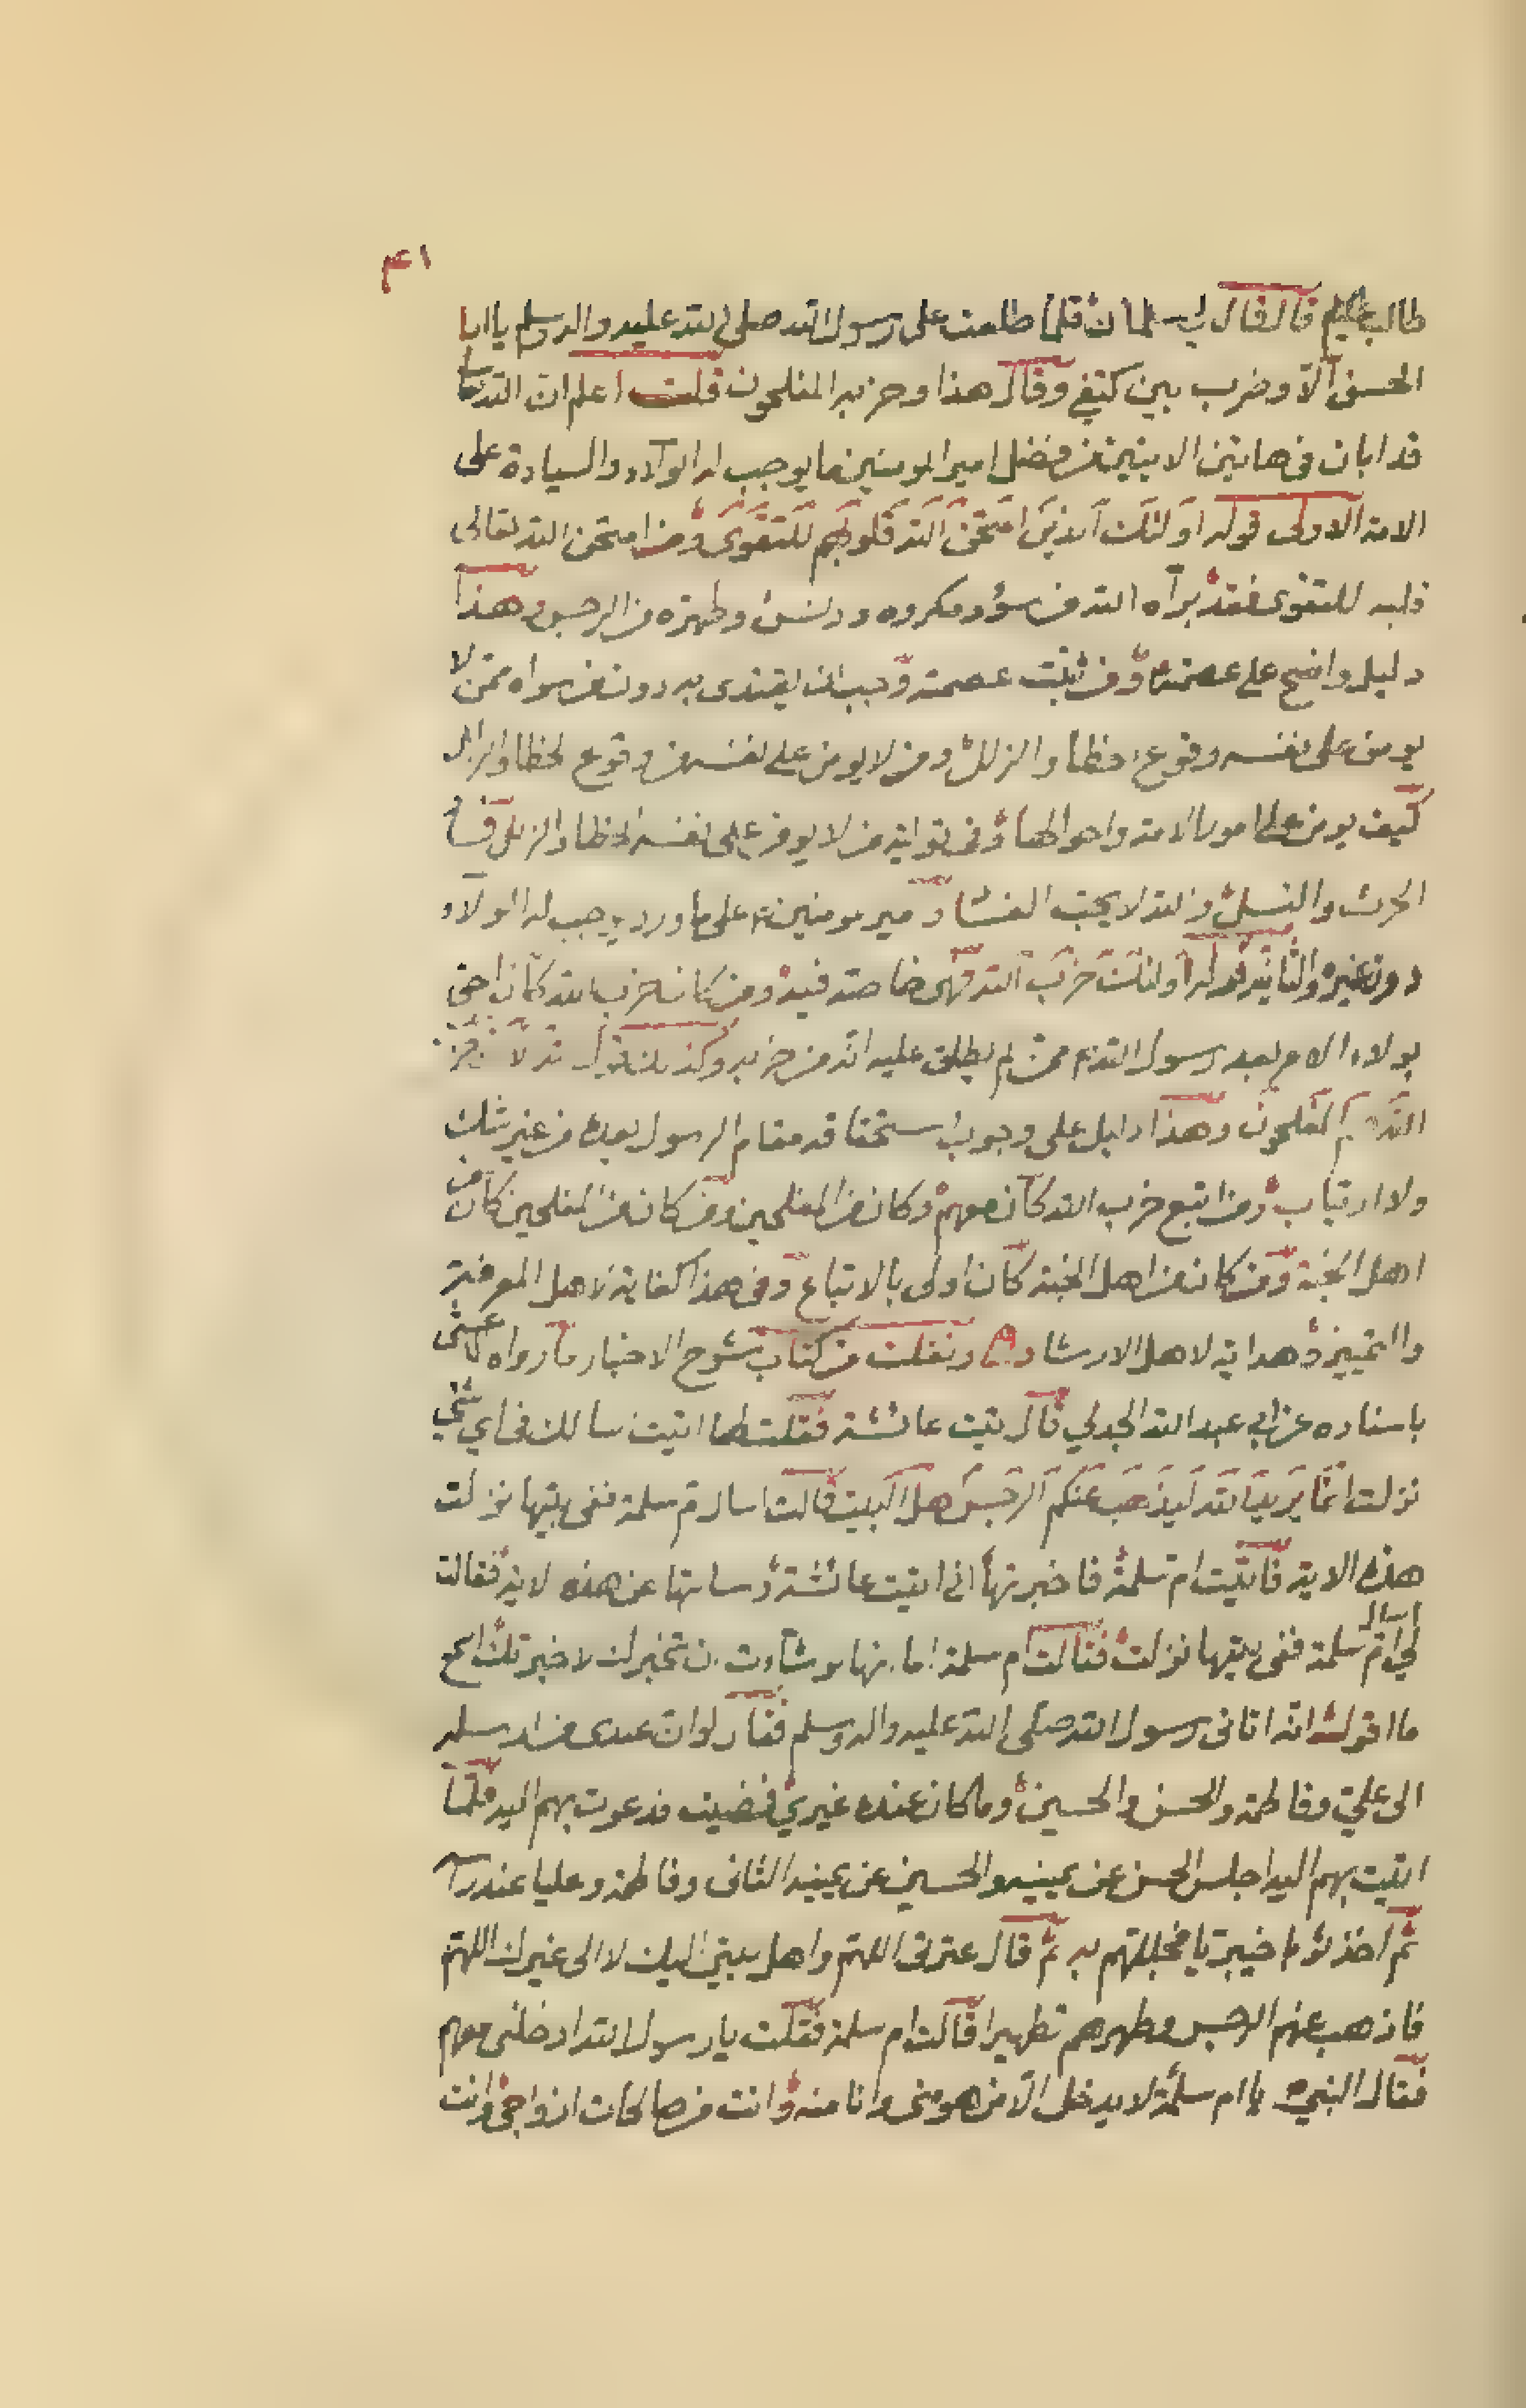 ١٤
طالب عليهم قال قال لي سلمان قلما طلعت على رسول الله صلى الله عليه واله وسلم يا ابا
الحسن الا وضرب بين كتفي وقال هذا وحزبه المفلحون قلت اعلم ان الله تعالى
قد ابان في هاتين الايتين من فضل امير المومنين ما يوجب له الولاء والسيادة على
الامة الاولى قوله اولئك الذين امتحن الله قلوبهم للتقوى ومن امتحن الله تعالى
قلبه للتقوى فقد برآه الله من سوء ومكروه ودنس وطهره من الرجس وهذا
دليل واضح على عصمته ومن ثبتت عصمته وجب ان يقتدى به دون من سواه ممن لا
يومن على نفسه وقوع الخطا والزلل ومن لا يومن على نفسه من وقوع الخطا والزلل
كيف يومن على امور الامة واحوالها وفي تولية من لا يومن على نفسه الخطا والزلل فساد
الحرث والنسل والله لا يحب الفساد وامير المومنين ع على ما ورد يوجب له الولاء
دون غيره والثانية قوله اولئك حزب الله فهي خاصة فيه ومن كان حزب الله كان احق
بولاء الامر بعد رسول الله ع ممن لم يطلق عليه انه من حزبه وكذلك قوله الا ان حزب
الله هم المفلحون وهذا دليل على وجوب استحقاقه مقام الرسول بعده من غير شك
ولا ارتياب ومن اتبع حزب الله كان معهم وكان من المفلحين ومن كان من المفلحين كان من
اهل الجنة ومن كان من اهل الجنة كان اولى بالاتباع وفي هذا كفاية لاهل المعرفة
والتمييز وهداية لاهل الارشاد ونقلت من كتاب شرح الاخبار ما رواه الاعمش
باسناده عن ابي عبد الله الجدلي قال اتيت عائشة فقلت لها اتيت اسالك في اي شي
نزلت انما يريد الله ليذهب عنكم الرجس اهل البيت قالت اسال ام سلمة ففي بيتها نزلت
هذه الاية فاتيت ام سلمة فاخبرتها اني اتيت عائشة وسالتها عن هذه الاية فقالت
لي اسال ام سلمة ففي بيتها نزلت فقالت ام سلمة اما انها لو شاءت ان تخبرك لاخبرتك اسمع
ما اقول انه اتاني رسول الله صلى الله عليه واله وسلم فقال لو ان عندي من ارسله
الى علي وفاطمة والحسن والحسين وما كان عنده غيري فمضيت فدعوت بهم اليه فلما
اتيت بهم اليه اجلس الحسن عن يمينه والحسين عن يمينه الثاني وفاطمة وعليا عند راسه
ثم اخذ ثوبا خيبريا فجللهم به ثم قال عترتي اللهم واهل بيتي اليك لا الى غيرك اللهم
فاذهب عنهم الرجس وطهرهم تطهيرا قالت ام سلمة فقلت يا رسول الله ادخلني معهم
فقال النبي يا ام سلمة لا يدخل الا من هو مني وانا منه وانت من صالحات ازواجي وانت